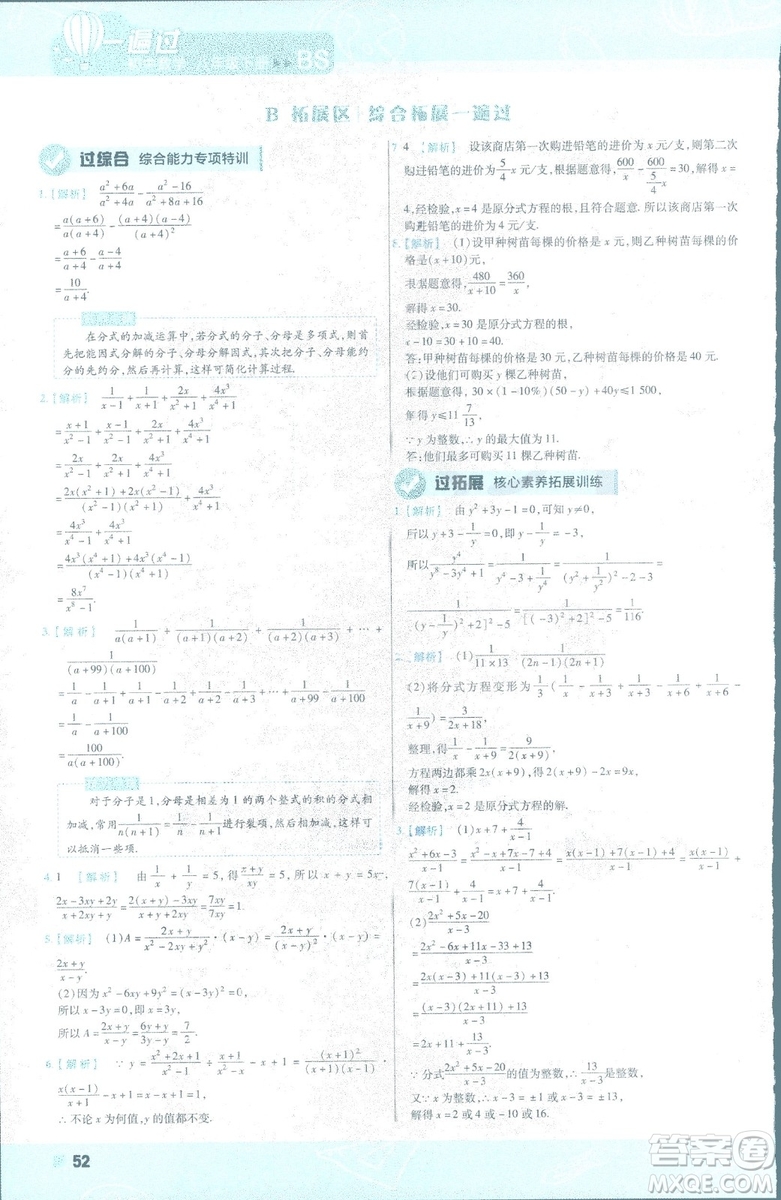 一遍过
八年级下册 BS
B 拓展区 综合拓展一遍过
过综合 综合能力专项特训
1.【解析】 (a²+6a)/(a²+4a) - (a²-16)/(a²+8a+16)
= a(a+6)/a(a+4) - (a+4)(a-4)/(a+4)²
= (a+6)/(a+4) - (a-4)/(a+4)
= 10/(a+4).
在分式的加减运算中,若分式的分子、分母是多项式,则首
先把能因式分解的分子、分母分解因式,其次把分子、分母能约
分的先约分,然后再计算,这样可简化计算过程.
2.【解析】 1/(x-1) - 1/(x+1) + 2x/(x²+1) + 4x³/(x⁴+1)
= (x+1)/(x²-1) - (x-1)/(x²-1) + 2x/(x²+1) + 4x³/(x⁴+1)
= 2x(x²+1)+2x(x²-1)/(x²-1)(x²+1) + 4x³/(x⁴+1)
= 4x³/(x⁴-1) + 4x³/(x⁴+1)
= 4x³(x⁴+1)+4x³(x⁴-1)/(x⁴-1)(x⁴+1)
= 8x⁷/(x⁸-1).
3.【解析】 1/a(a+1) + 1/(a+1)(a+2) + 1/(a+2)(a+3) + … +
1/(a+99)(a+100)
= 1/a - 1/(a+1) + 1/(a+1) - 1/(a+2) + … + 1/(a+99) - 1/(a+100)
= 1/a - 1/(a+100)
= 100/a(a+100).
对于分子是1,分母是相差为1的两个整式的积的分式相
加减,常用 1/n(n+1) = 1/n - 1/(n+1) 进行裂项,然后相加减,这样可
以抵消一些项.
4. 1 【解析】 由 1/x + 1/y = 5,得 (x+y)/xy = 5,所以 x+y=5xy,
(2x-3xy+2y)/(x+2xy+y) = (2(x+y)-3xy)/(x+y+2xy) = 7xy/7xy = 1.
5.【解析】 (1)A = (2x+y)/(x²-2xy+y²)·(x-y) = (2x+y)/(x-y)²·(x-y) =
(2x+y)/(x-y).
(2)因为 x²-6xy+9y²=(x-3y)²=0,
所以 x-3y=0,则 x=3y,
所以 A = (2x+y)/(x-y) = (6y+y)/(3y-y) = 7/2.
6.【解析】 ∵ y = (x²+2x+1)/(x²-1) ÷ (x+1)/(x²-x) - x+1 = (x+1)²/(x+1)(x-1) ·
x(x-1)/(x+1) - x+1 = x-x+1=1,
∴ 不论 x 为何值,y 的值都不变.
7. 4 【解析】 设该商店第一次购进铅笔的进价为 x 元/支,则第二次
购进铅笔的进价为 5/4 x 元/支,根据题意,得 600/x - 600/(5/4 x) = 30,解得 x=
4,经检验,x=4 是原分式方程的根,且符合题意. 所以该商店第一
次购进铅笔的进价为 4 元/支.
8.【解析】 (1)设甲种树苗每棵的价格是 x 元,则乙种树苗每棵的价
格是(x+10)元,
根据题意,得 480/(x+10) = 360/x,
解得 x=30.
经检验,x=30 是原分式方程的根,
x+10=30+10=40.
答:甲种树苗每棵的价格是 30 元,乙种树苗每棵的价格是 40 元.
(2)设他们购买 y 棵乙种树苗,
根据题意,得 30×(1-10%)(50-y)+40y≤1 500,
解得 y≤11 7/13,
∵ y 为整数,∴ y 的最大值为 11.
答:他们最多可购买 11 棵乙种树苗.
过拓展 核心素养拓展训练
1.【解析】 由 y²+3y-1=0,可知 y≠0,
所以 y+3-1/y=0,即 y-1/y=-3,
所以 y⁴/(y⁸-3y⁴+1) = 1/(y⁴-3+1/y⁴) = 1/((y²+1/y²)²-5) =
1/([(y-1/y)²+2]²-5) = 1/([(-3)²+2]²-5) = 1/116.
2.【解析】 (1)1/(11×13) 1/(2n-1)(2n+1)
(2)将分式方程变形为 1/3(1/x - 1/(x+3) + 1/(x+3) - 1/(x+6) + 1/(x+6) -
1/(x+9)) = 3/(2x+18),
整理,得 1/x - 1/(x+9) = 9/2(x+9),
方程两边都乘 2x(x+9),得 2(x+9)-2x=9x,
解得 x=2.
经检验,x=2 是原分式方程的解.
3.【解析】 (1)x+7+4/(x-1)
(x²+6x-3)/(x-1) = (x²-x+7x-7+4)/(x-1) = (x(x-1)+7(x-1)+4)/(x-1) = x(x-1)/(x-1) +
7(x-1)/(x-1) + 4/(x-1) = x+7+4/(x-1).
(2)(2x²+5x-20)/(x-3)
= (2x²-6x+11x-33+13)/(x-3)
= (2x(x-3)+11(x-3)+13)/(x-3)
= (x-3)(2x+11)+13/(x-3)
= 2x+11+13/(x-3),
∵ 分式 (2x²+5x-20)/(x-3) 的值为整数,∴ 13/(x-3) 是整数,
∵ x 为整数,∴ x-3=±1 或 x-3=±13,
解得 x=4 或 2 或 -10 或 16.
52
答案圈
MXQE.COM